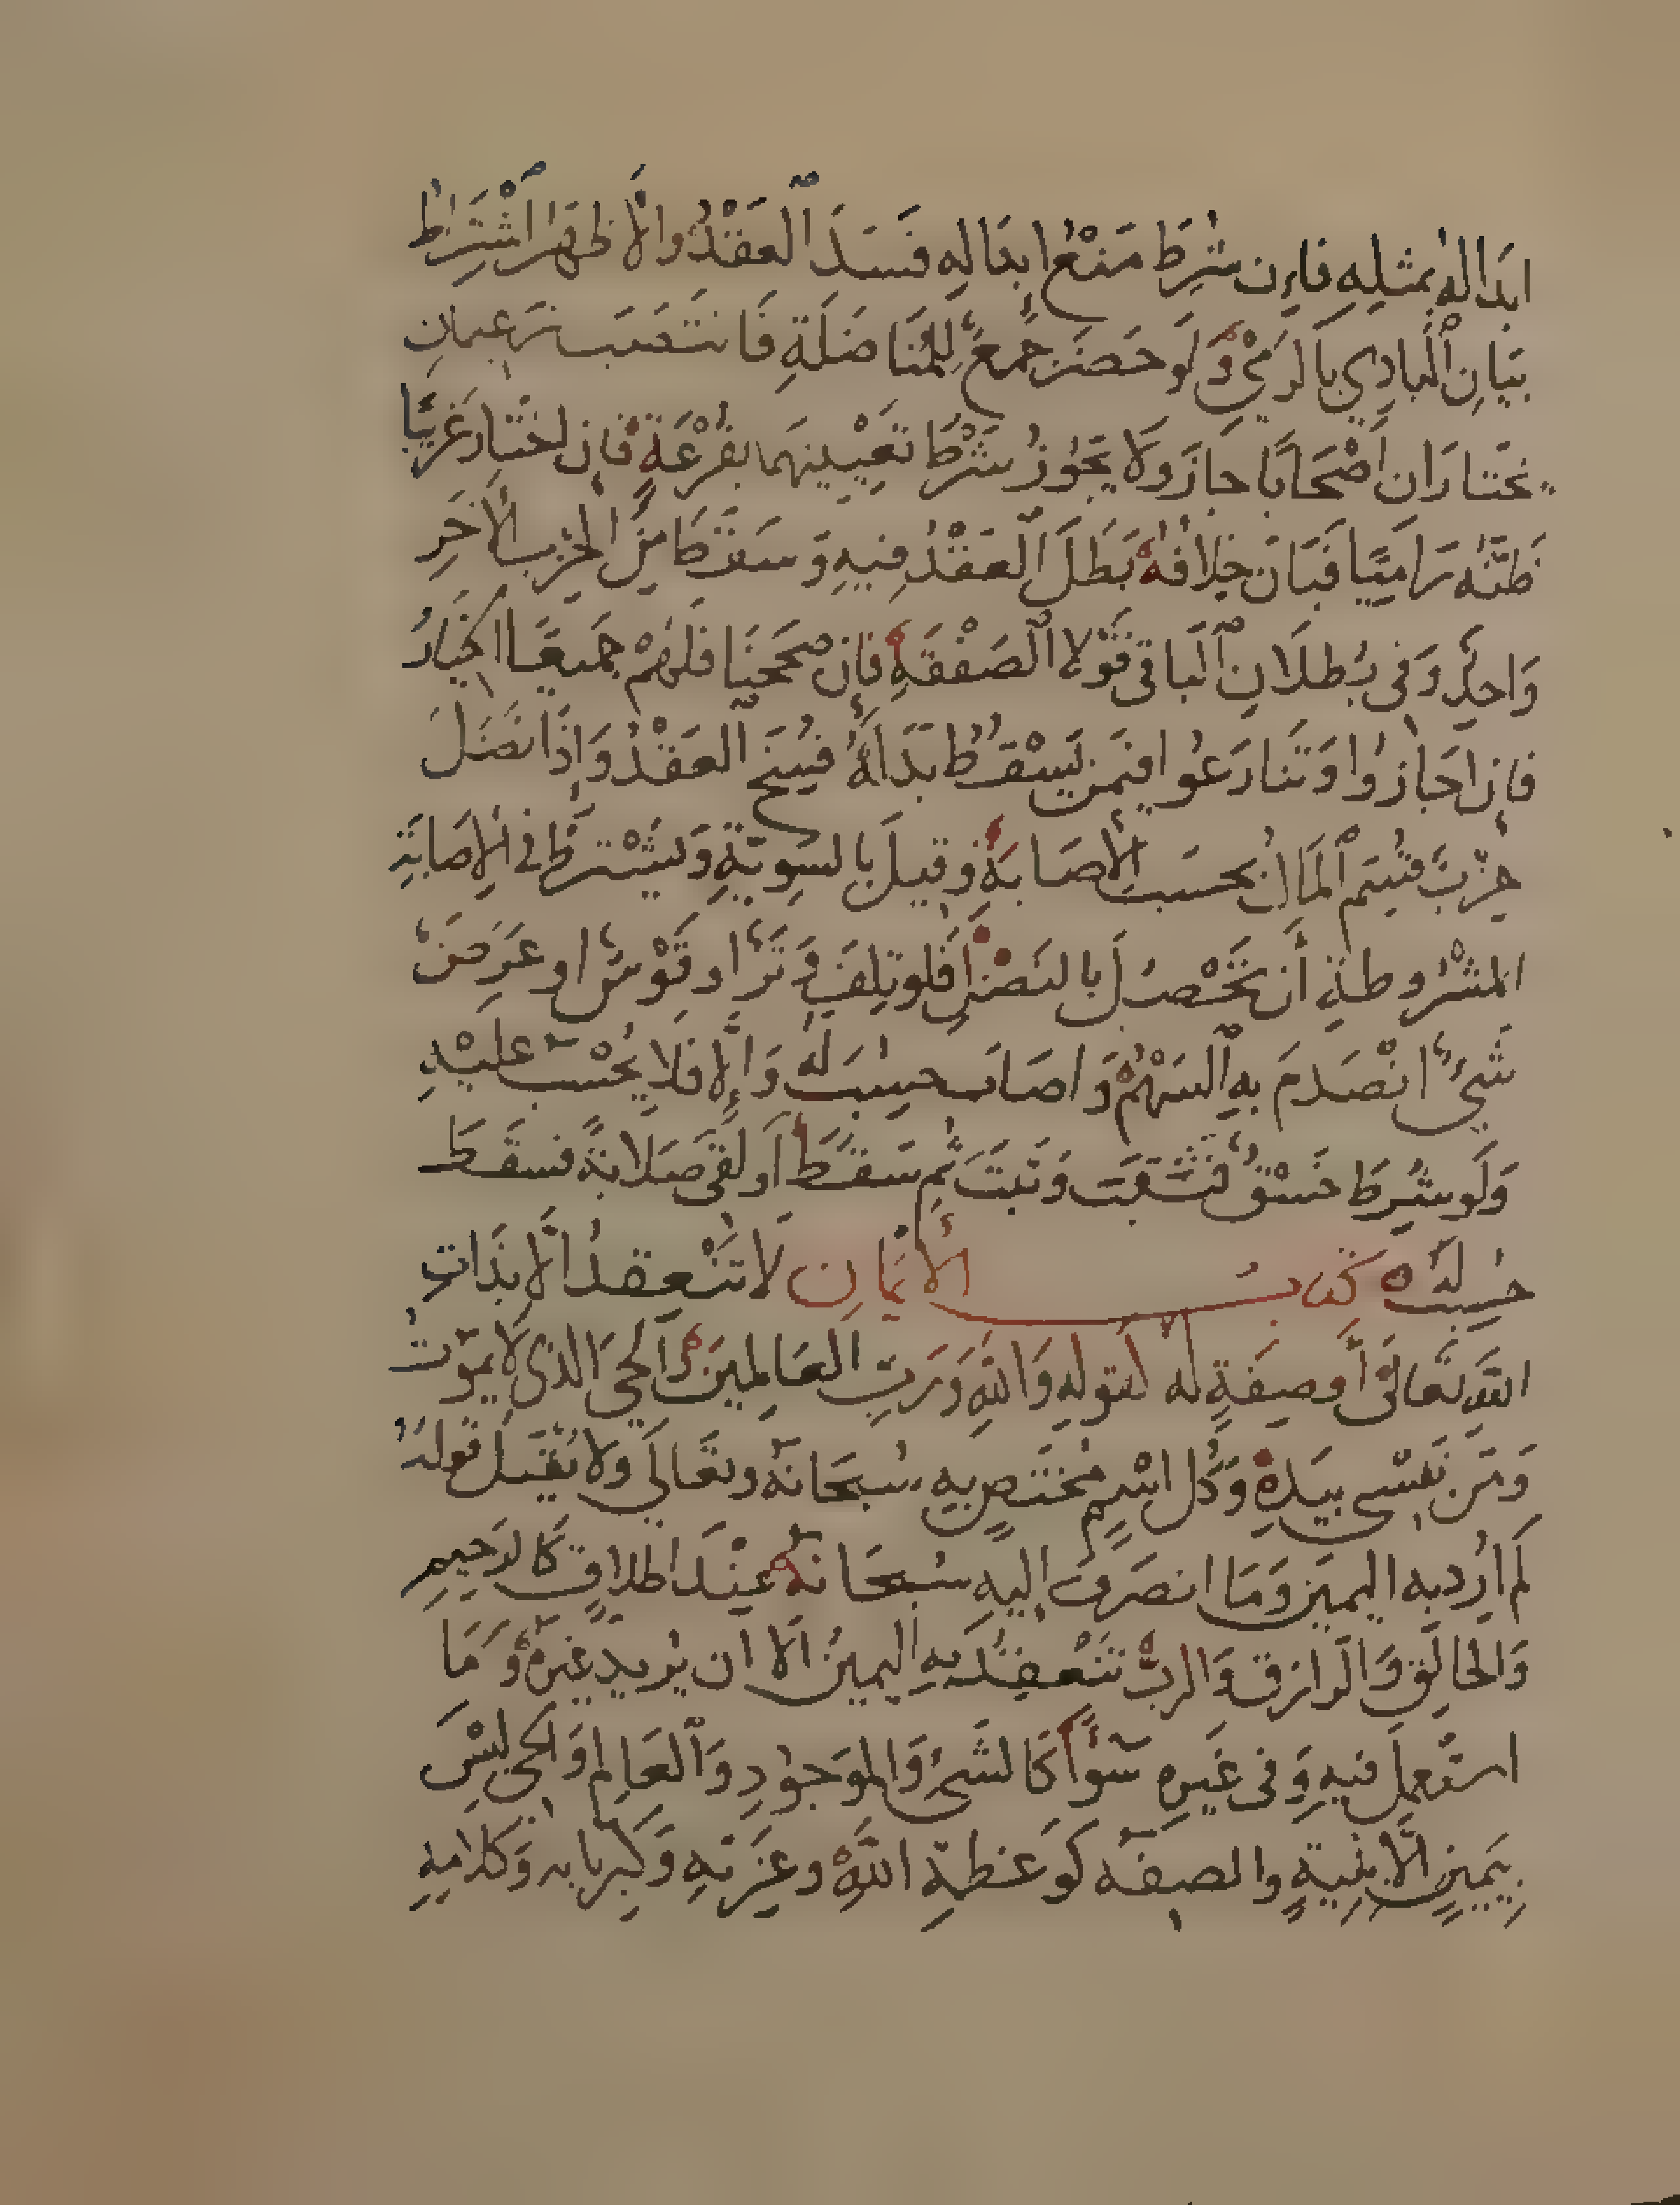 ابداله بمثله فان شرط منع ابداله فسد العقد والأظهر اشتراط
بيان البادي بالرمي ولو حضر جمع للمناضلة فانتصب زعيمان
يختاران اصحابا جاز ولا يجوز شرط تعيينهما بقرعة فان اختار غريبا
ظنه راميا فبان خلافه بطل العقد فيه وسقط من الحزب الآخر
واحد وفي بطلان الباقي قولا الصفقة فان صححنا فلهم جميعا الخيار
فان اجازوا وتنازعوا فيمن يسقط بداله فسخ العقد واذا نضل
حزب قسم المال بحسب الاصابة وقيل بالسوية ويشترط في الاصابة
المشروطة أن تحصل بالنصل فلو تلف وتر او قوس او عرض
شيء انصدم به السهم واصاب حسب له والا فلا يحسب عليه
ولو شرط خسق فثقب وثبت ثم سقط أو لقي صلابة فسقط
حسب له كتاب الأيمان لا تنعقد إلا بذات
الله تعالى أو صفة له كقوله والله ورب العالمين والحي الذي لا يموت
ومن نفسي بيده وكل اسم مختص به سبحانه وتعالى ولا يقبل قوله
لم ارد به اليمين وما انصرف إليه سبحانه عند اطلاق كالرحيم
والخالق والرازق والرب تنعقد به اليمين الا ان يريد غيره وما
استعمل فيه وفي غيره سواء كالشيء والموجود والعالم والحي ليس
بيمين الا بنية والصفه كوعظمة الله وعزته وكبريايه وكلامه